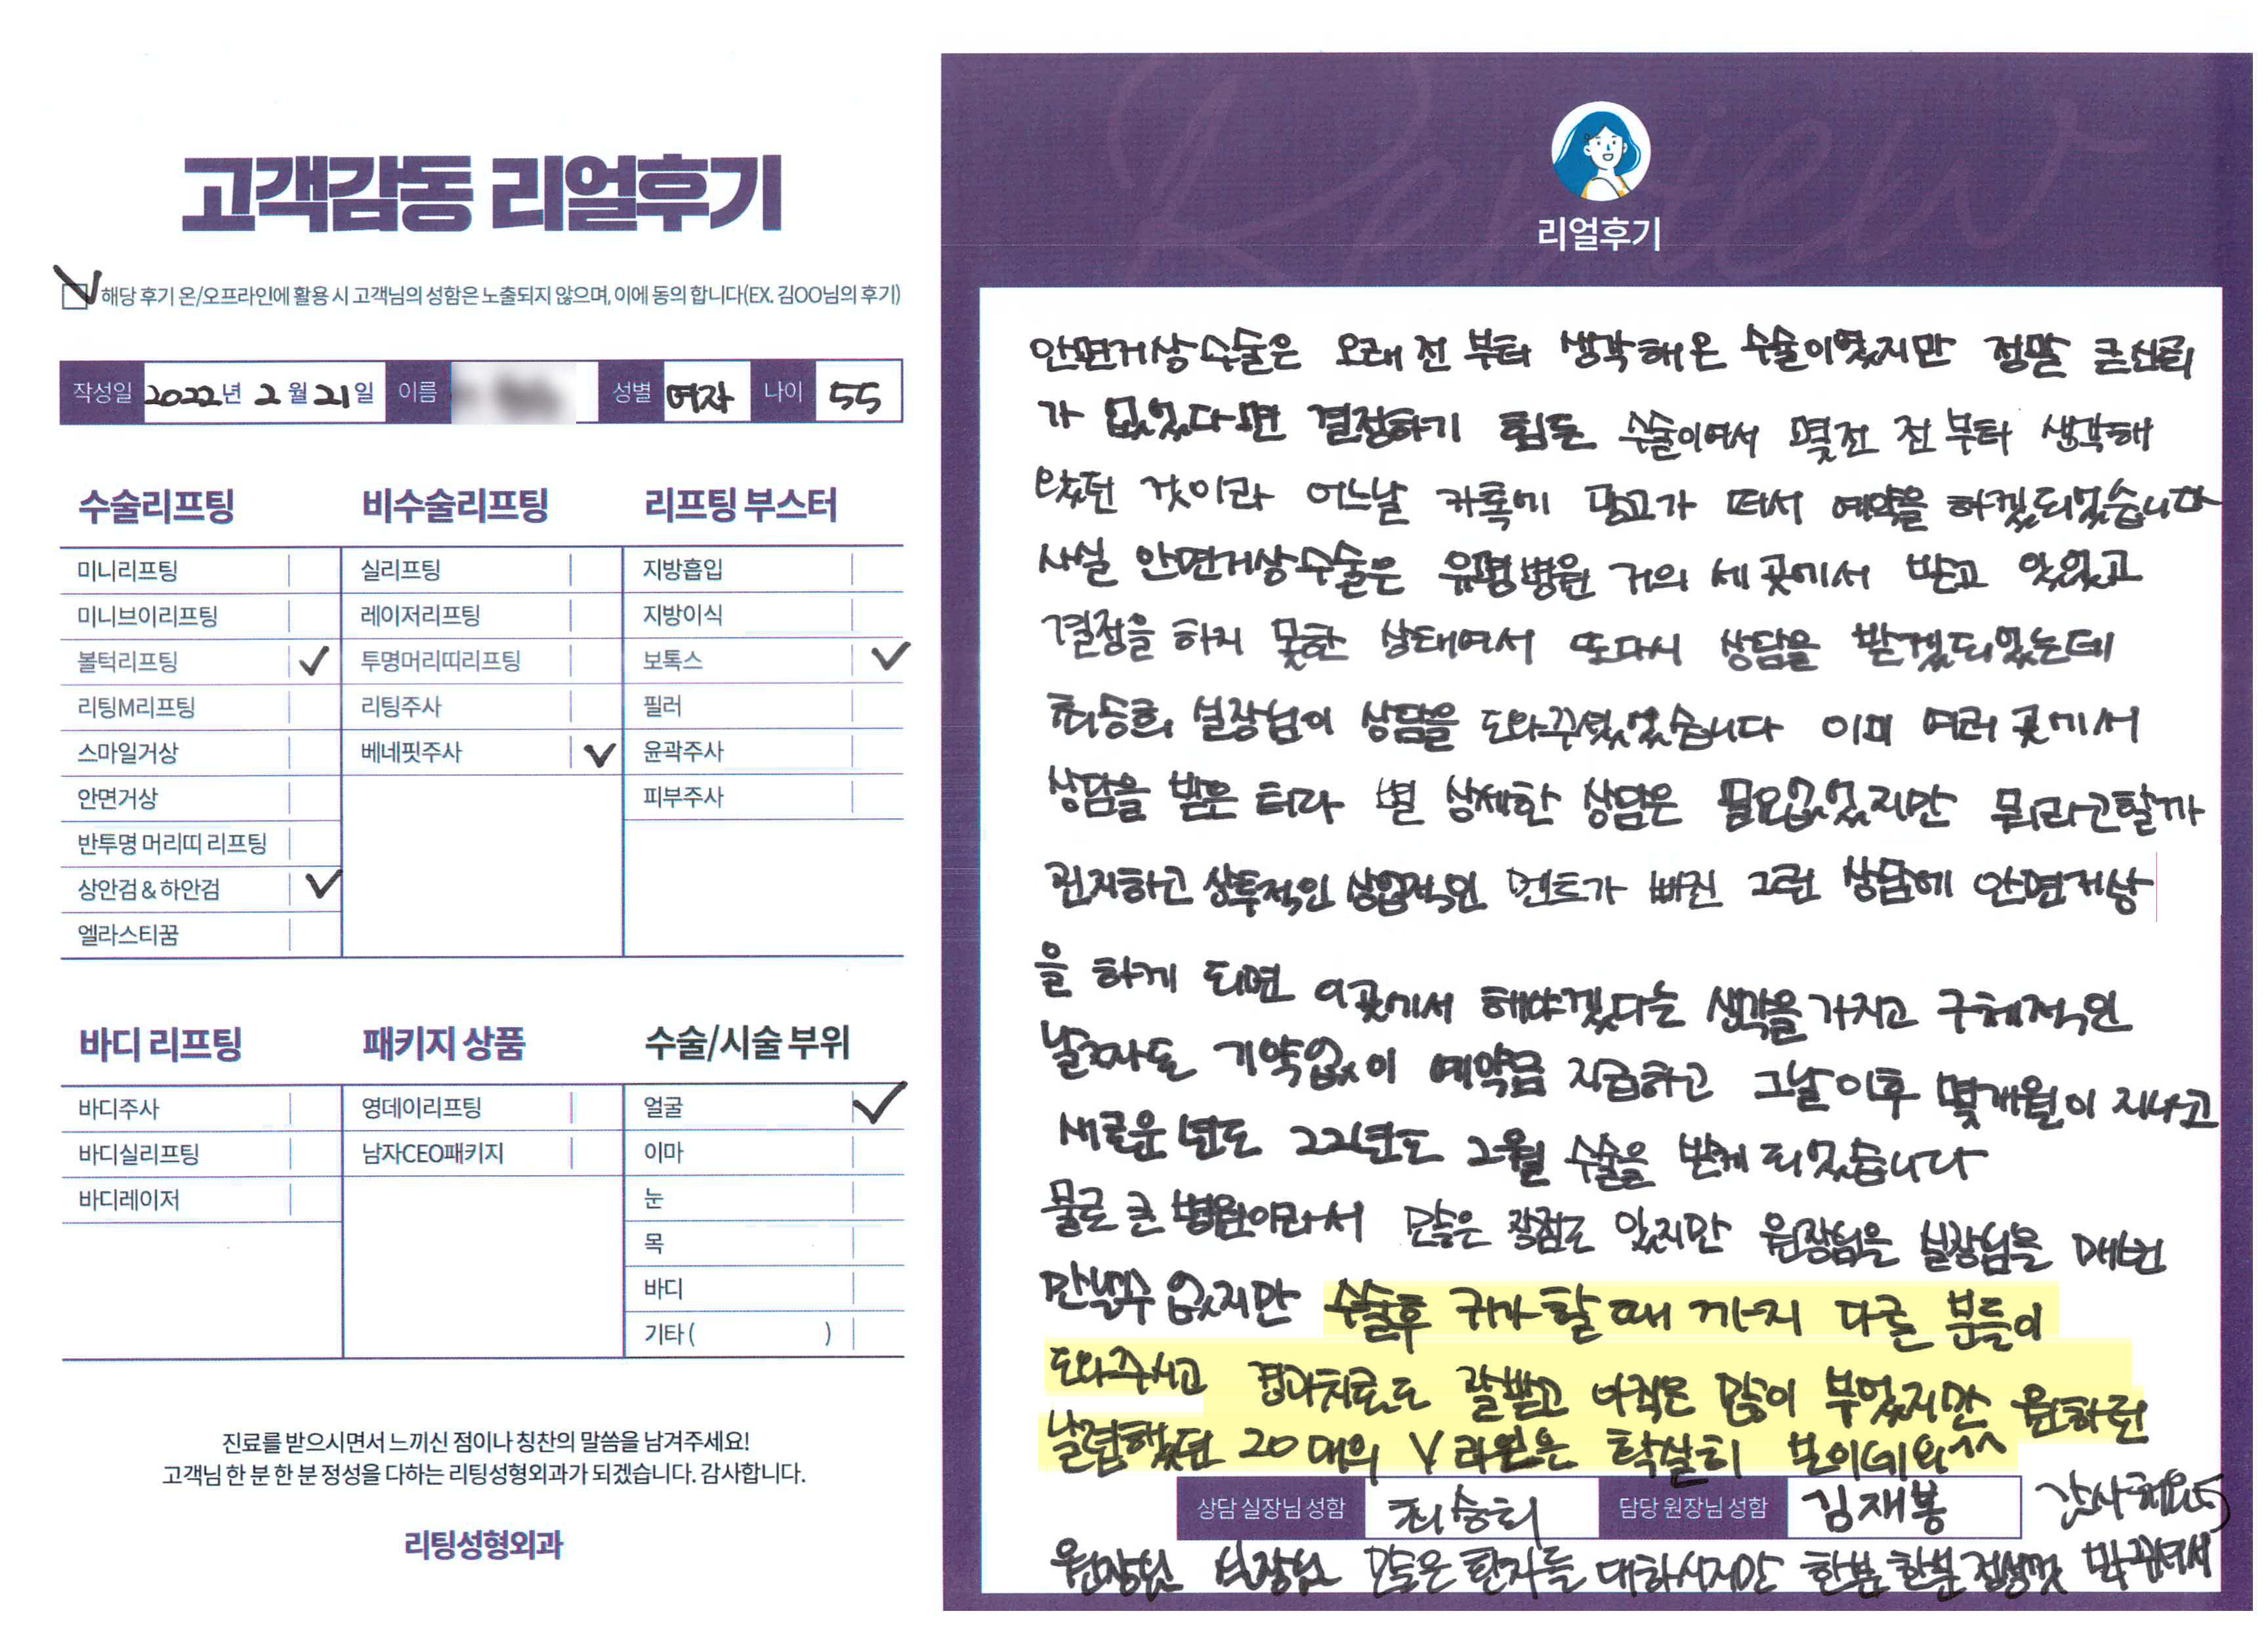 고객감동 리얼후기
해당 후기 온/오프라인에 활용 시 고객님의 성함은 노출되지 않으며, 이에 동의 합니다(EX. 김OO님의 후기)
작성일 2022년 2월 21일 이름 성별 여자 나이 55
수술리프팅
미니리프팅
미니브이리프팅
볼턱리프팅
리팅M리프팅
스마일거상
안면거상
반투명 머리띠 리프팅
상안검 & 하안검
엘라스티꿈
비수술리프팅
실리프팅
레이저리프팅
투명머리띠리프팅
리팅주사
베네핏주사
리프팅 부스터
지방흡입
지방이식
보톡스
필러
윤곽주사
피부주사
바디 리프팅
바디주사
바디실리프팅
바디레이저
패키지 상품
영데이리프팅
남자CEO패키지
수술/시술 부위
얼굴
이마
눈
목
바디
기타 ( )
진료를 받으시면서 느끼신 점이나 칭찬의 말씀을 남겨주세요!
고객님 한 분 한 분 정성을 다하는 리팅성형외과가 되겠습니다. 감사합니다.
리팅성형외과
Review
리얼후기
안면거상수술은 오래 전 부터 생각해온 수술이였지만 정말 큰 신뢰
가 없었다면 결정하기 힘든 수술이여서 몇년 전 부터 생각해
왔던 것이라 어느날 카톡에 광고가 떠서 예약을 하겠되었습니다
사실 안면거상수술은 유명병원 거의 세 곳에서 받고 있었고
결정을 하지 못한 상태여서 또다시 상담을 받겠되었는데
최승희 실장님이 상담을 도와주셨었습니다 이미 여러 곳에서
상담을 받은 터라 별 상세한 상담은 필요없었지만 뭐라고할까
진지하고 상투적인 상업적인 멘트가 빠진 그런 상담에 안면거상
을 하게 되면 이곳에서 해야겠다는 생각을 가지고 구체적인
날짜도 기약없이 예약금 지급하고 그날 이후 몇개월이 지나고
새로운 년도 22년도 2월 수술을 받게 되었습니다
물론 큰 병원이라서 많은 장점도 있지만 원장님을 실장님을 매번
만날수 없지만 수술후 귀가 할때 까지 다른 분들이
도와주시고 경과치료도 잘받고 아직은 많이 부었지만 원하던
날렵했던 20대의 V라인은 확실히 보이네요^^
상담 실장님 성함 최승희 담당 원장님 성함 김재봉 감사해요
원장님 실장님 많은 환자를 대하시지만 한분 한분 정성껏